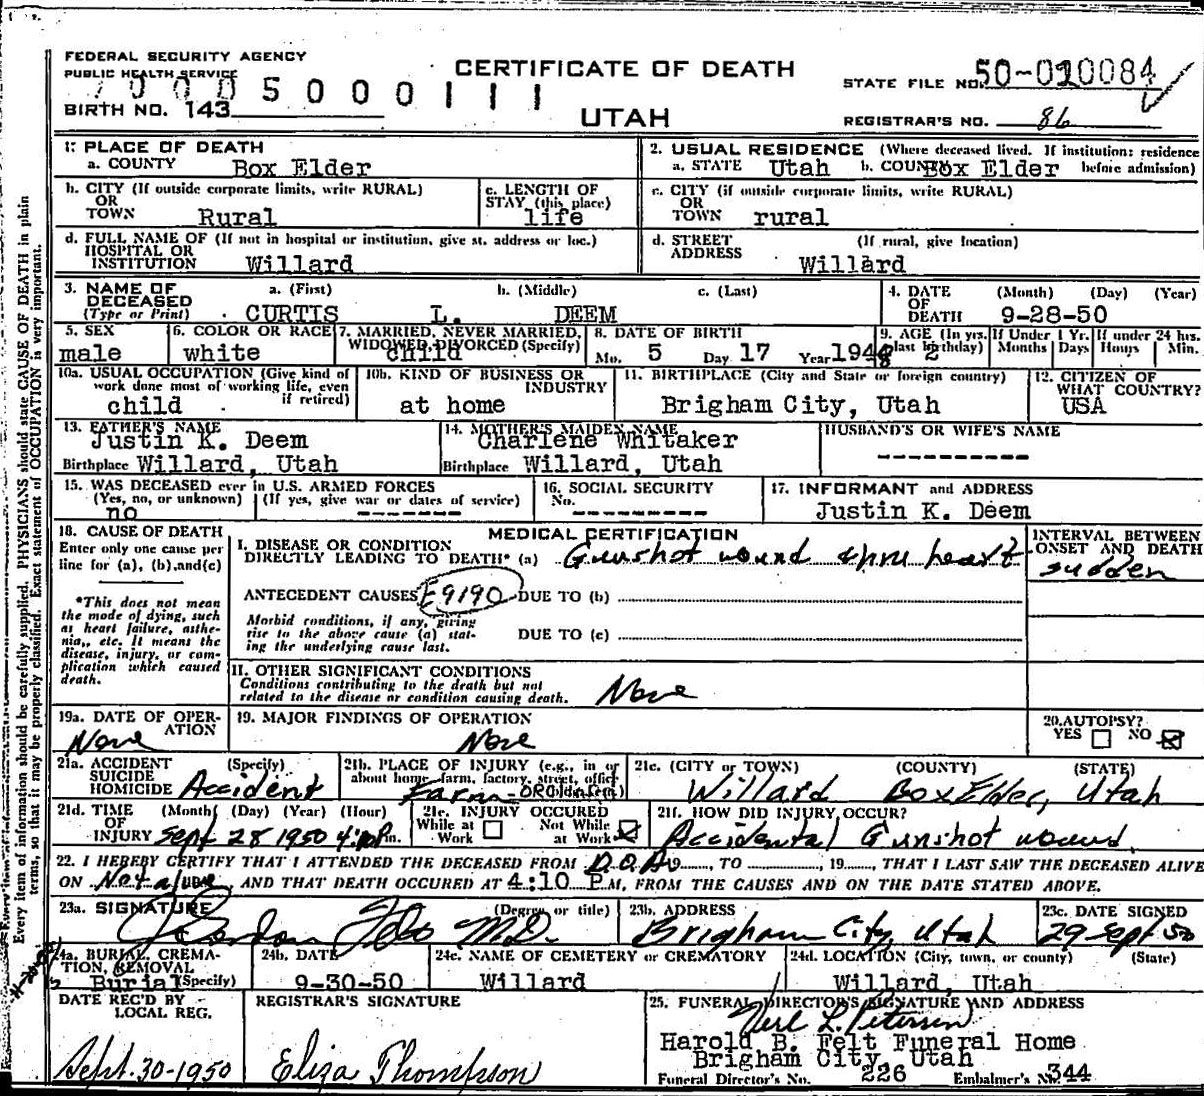 FEDERAL SECURITY AGENCY
PUBLIC HEALTH SERVICE
CERTIFICATE OF DEATH
STATE FILE NO. 50-010084
BIRTH NO. 143
UTAH
REGISTRAR'S NO. 86
1. PLACE OF DEATH
a. COUNTY Box Elder
2. USUAL RESIDENCE (Where deceased lived. If institution: residence before admission)
a. STATE Utah b. COUNTY Box Elder
b. CITY (If outside corporate limits, write RURAL)
OR
TOWN Rural
c. LENGTH OF
STAY (this place)
life
c. CITY (if outside corporate limits, write RURAL)
OR
TOWN rural
d. FULL NAME OF (If not in hospital or institution, give st. address or loc.)
HOSPITAL OR
INSTITUTION Willard
d. STREET (If rural, give location)
ADDRESS Willard
3. NAME OF a. (First) b. (Middle) c. (Last)
DECEASED
(Type or Print) CURTIS L. DEEM
4. DATE (Month) (Day) (Year)
OF
DEATH 9-28-50
5. SEX
male
6. COLOR OR RACE
white
7. MARRIED, NEVER MARRIED,
WIDOWED, DIVORCED (Specify)
child
8. DATE OF BIRTH
Mo. 5 Day 17 Year 1948
9. AGE (In yrs. last birthday) 2
If Under 1 Yr.
Months Days
If under 24 hrs.
Hours Min.
10a. USUAL OCCUPATION (Give kind of
work done most of working life, even
if retired)
child
10b. KIND OF BUSINESS OR
INDUSTRY
at home
11. BIRTHPLACE (City and State or foreign country)
Brigham City, Utah
12. CITIZEN OF
WHAT COUNTRY?
USA
13. FATHER'S NAME
Justin K. Deem
Birthplace Willard, Utah
14. MOTHER'S MAIDEN NAME
Charlene Whitaker
Birthplace Willard, Utah
HUSBAND'S OR WIFE'S NAME
----------
15. WAS DECEASED ever in U.S. ARMED FORCES
(Yes, no, or unknown) (If yes, give war or dates of service)
no -------
16. SOCIAL SECURITY
No. ---------
17. INFORMANT and ADDRESS
Justin K. Deem
18. CAUSE OF DEATH
Enter only one cause per
line for (a), (b), and (c)
*This does not mean
the mode of dying, such
as heart failure, asthe-
nia, etc. It means the
disease, injury, or com-
plication which caused
death.
MEDICAL CERTIFICATION
I. DISEASE OR CONDITION
DIRECTLY LEADING TO DEATH* (a) Gunshot wound thru heart
INTERVAL BETWEEN
ONSET AND DEATH
sudden
ANTECEDENT CAUSES E9190 DUE TO (b)
Morbid conditions, if any, giving
rise to the above cause (a) stat-
ing the underlying cause last.
DUE TO (c)
II. OTHER SIGNIFICANT CONDITIONS
Conditions contributing to the death but not
related to the disease or condition causing death. None
19a. DATE OF OPER-
ATION
None
19. MAJOR FINDINGS OF OPERATION
None
20. AUTOPSY?
YES NO
21a. ACCIDENT (Specify)
SUICIDE
HOMICIDE Accident
21b. PLACE OF INJURY (e.g., in or
about home, farm, factory, street, office
Farm
21c. (CITY or TOWN) (COUNTY) (STATE)
Willard Box Elder, Utah
21d. TIME (Month) (Day) (Year) (Hour)
OF
INJURY Sept 28 1950 4:10 Pm.
21e. INJURY OCCURED
While at Work Not While at Work
21f. HOW DID INJURY OCCUR?
Accidental Gunshot wound.
22. I HEREBY CERTIFY THAT I ATTENDED THE DECEASED FROM D.O.A. 19 TO 19 THAT I LAST SAW THE DECEASED ALIVE
ON Not alive, AND THAT DEATH OCCURED AT 4:10 P M, FROM THE CAUSES AND ON THE DATE STATED ABOVE.
23a. SIGNATURE (Degree or title)
M.D.
23b. ADDRESS
Brigham City, Utah
23c. DATE SIGNED
29 Sept 50
24a. BURIAL, CREMA-
TION, REMOVAL
Burial (Specify)
24b. DATE
9-30-50
24c. NAME OF CEMETERY or CREMATORY
Willard
24d. LOCATION (City, town, or county) (State)
Willard, Utah
DATE REC'D BY
LOCAL REG.
Sept. 30-1950
REGISTRAR'S SIGNATURE
Eliza Thompson
25. FUNERAL DIRECTOR'S SIGNATURE AND ADDRESS
L. Petersen
Harold B. Felt Funeral Home
Brigham City, Utah
Funeral Director's No. 226 Embalmer's No. 344
Every item of information should be carefully supplied. PHYSICIANS should state CAUSE OF DEATH in plain
terms, so that it may be properly classified. Exact statement of OCCUPATION is very important.